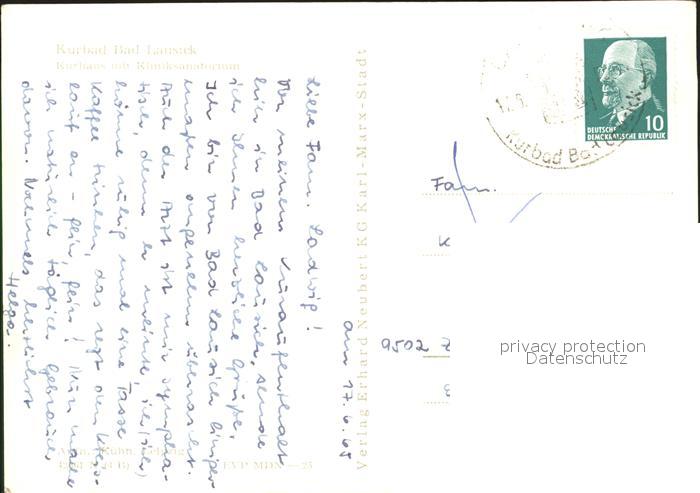 Kurbad Bad Lausick
Kurhaus mit Kliniksanatorium
Liebe Fam. Ladwig!
Von meinem Kuraufenthalt
hier in Bad Lausick, sende
ich Ihnen herzliche Grüße.
Ich bin von Bad Lausick einiger-
maßen angenehm überrascht.
Auch der Arzt ist mir sympha-
tisch, denn er meinte, ich
könne ruhig mal eine Tasse
Kaffee trinken, das regt den Kreis-
lauf an - fein, fein! Nun mache
ich natürlich täglich Gebrauch
davon. Nochmals herzlichst
Helga.
am 17.6.65
Verlag Erhard Neubert KG Karl-Marx-Stadt
Kühn, Leipzig
EVP MDN —25
Kurbad Bad Lausick
DEUTSCHE
DEMOKRATISCHE REPUBLIK
10
Fam.
K
9502
privacy protection
Datenschutz